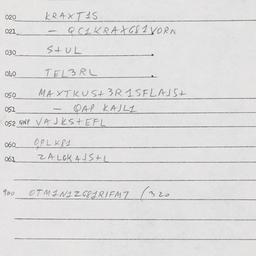 020 KRAXT1S
021 - QC1KRAXG81VORN
030 S+UL
040 TEL3RL
050 MAXTKUS+3R1SFLAJS+
051 - QAP KAJL1
052 VAJKS+EFL
060 QPLK81
061 ZALGK4JS+L
900 OTM1N1Z681RIFM7 (320